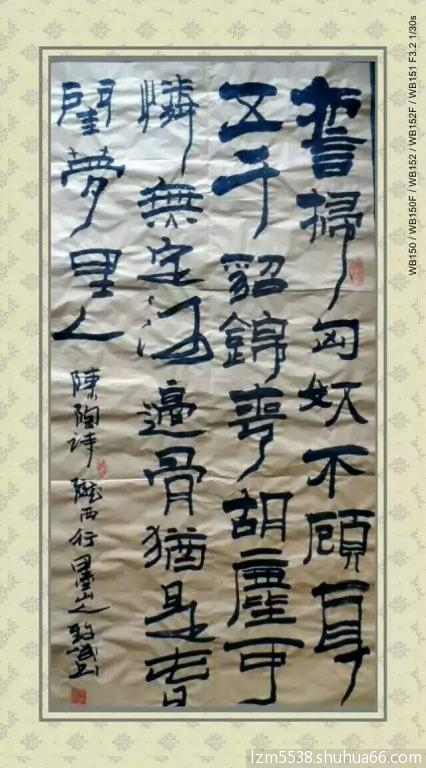 誓掃匈奴不顧身
五千貂錦喪胡塵可
憐無定河邊骨猶是春
閨夢里人
陳陶詩 隴西行 墨山人
WB150 / WB150F / WB152 / WB152F / WB151 F3.2 1/30s
lzm5538.shuhua66.com